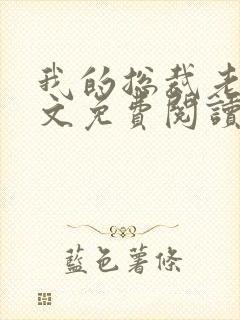 我的总裁老
文免費閱讀
藍色薯條